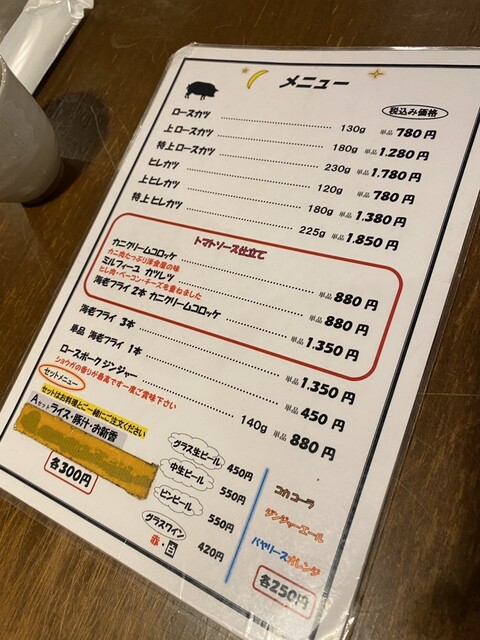 メニュー
税込み価格
ロースカツ 130g 単品 780円
上ロースカツ 180g 単品 1.280円
特上ロースカツ 230g 単品 1.780円
ヒレカツ 120g 単品 780円
上ヒレカツ 180g 単品 1.380円
特上ヒレカツ 225g 単品 1.850円
トマトソース仕立て
カニクリームコロッケ 単品 880円
カニ肉たっぷり洋食屋の味
ミルフィーユ カツレツ 単品 880円
ヒレ肉・ベーコン・チーズを重ねました
海老フライ 2本 カニクリームコロッケ 単品 1.350円
海老フライ 3本 単品 1.350円
単品 海老フライ 1本 単品 450円
ロースポークジンジャー 140g 単品 880円
ショウガの香りが最高です一度ご賞味下さい
セットメニュー
セットはお料理とご一緒にご注文ください
Aセット ライス・豚汁・お新香
各300円
グラス生ビール 450円
中生ビール 550円
ビンビール 550円
グラスワイン
赤・白 420円
コカコーラ
ジンジャーエール
バヤリースオレンジ
各250円